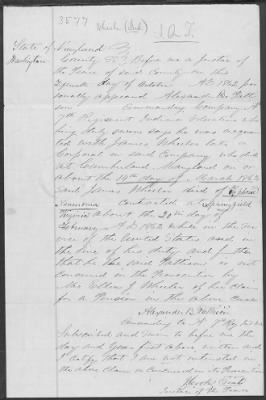 3577
Wheeler (Ind) I.O.T.
State of Maryland }
Washington County SS } Before me a Justice of
the Peace of said County on this
day of October A.D. 1862 per
sonally appeared Alexander B.
Commanding Company A
7th Regiment Indiana Volunteers who
being duly sworn says he was acquain
ted with James Wheeler late a
Corporal in said Company who died
at Cumberland Maryland on or
about the 14th day of March 1862
Said James Wheeler died of Typhoid
Pneumonia contracted at Springfield
Virginia about the 20th day of
February A.D. 1862 while in the ser
vice of the United States and in
the line of his duty and further
that he the said is not
concerned in the prosecution by
Mrs Ellen J Wheeler of her claim
for a Pension in the above cause
Alexander B.
Commanding Co A 7 Reg Ind Vol
Subscribed and sworn to before me the
day and year first above written and
I certify that I am not interested in
the above claim or concerned in its prosecution
Justice of the Peace